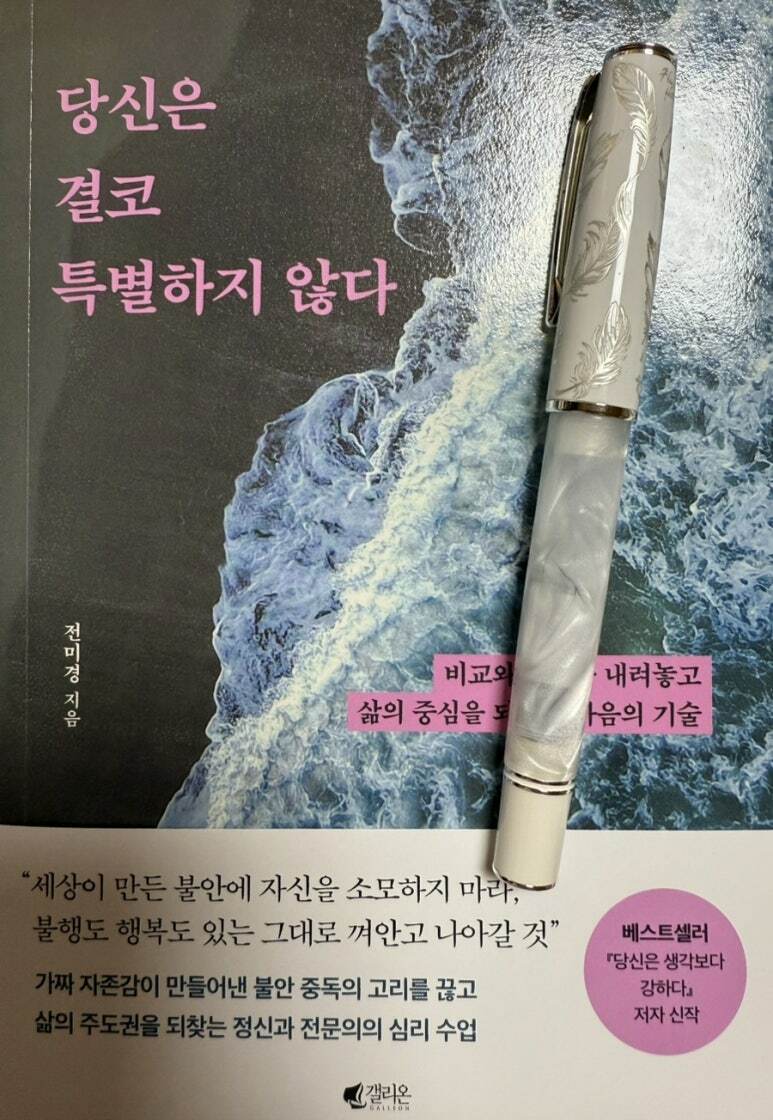 당신은
결코
특별하지 않다
전미경 지음
비교와 내려놓고
삶의 중심을 마음의 기술
“세상이 만든 불안에 자신을 소모하지 마라,
불행도 행복도 있는 그대로 껴안고 나아갈 것”
가짜 자존감이 만들어낸 불안 중독의 고리를 끊고
삶의 주도권을 되찾는 정신과 전문의의 심리 수업
베스트셀러
『당신은 생각보다
강하다』
저자 신작
갤리온
GALLEON